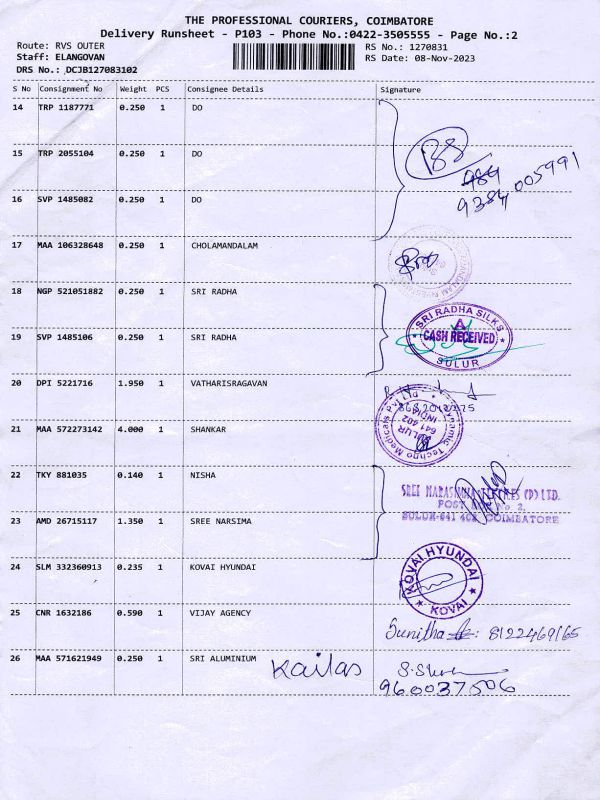 THE PROFESSIONAL COURIERS, COIMBATORE
Delivery Runsheet - P103 - Phone No.:0422-3505555 - Page No.:2
Route: RVS OUTER
RS No.: 1270831
Staff: ELANGOVAN
RS Date: 08-Nov-2023
DRS No.: DCJB127083102
S No Consignment No Weight PCS Consignee Details Signature
14 TRP 1187771 0.250 1 DO
15 TRP 2055104 0.250 1 DO
9384 005991
16 SVP 1485082 0.250 1 DO
17 MAA 106328648 0.250 1 CHOLAMANDALAM
18 NGP 521051882 0.250 1 SRI RADHA
SRI RADHA SILKS
A
CASH RECEIVED
SULUR
19 SVP 1485106 0.250 1 SRI RADHA
20 DPI 5221716 1.950 1 VATHARISRAGAVAN
21 MAA 572273142 4.000 1 SHANKAR
SULUR
641 402
INDIA
22 TKY 881035 0.140 1 NISHA
23 AMD 26715117 1.350 1 SREE NARSIMA
SULUR-641 402 COIMBATORE
24 SLM 332360913 0.235 1 KOVAI HYUNDAI
KOVAI HYUNDAI
KOVAI
25 CNR 1632186 0.590 1 VIJAY AGENCY
Sunitha : 8122469165
26 MAA 571621949 0.250 1 SRI ALUMINIUM Kailas
960037506